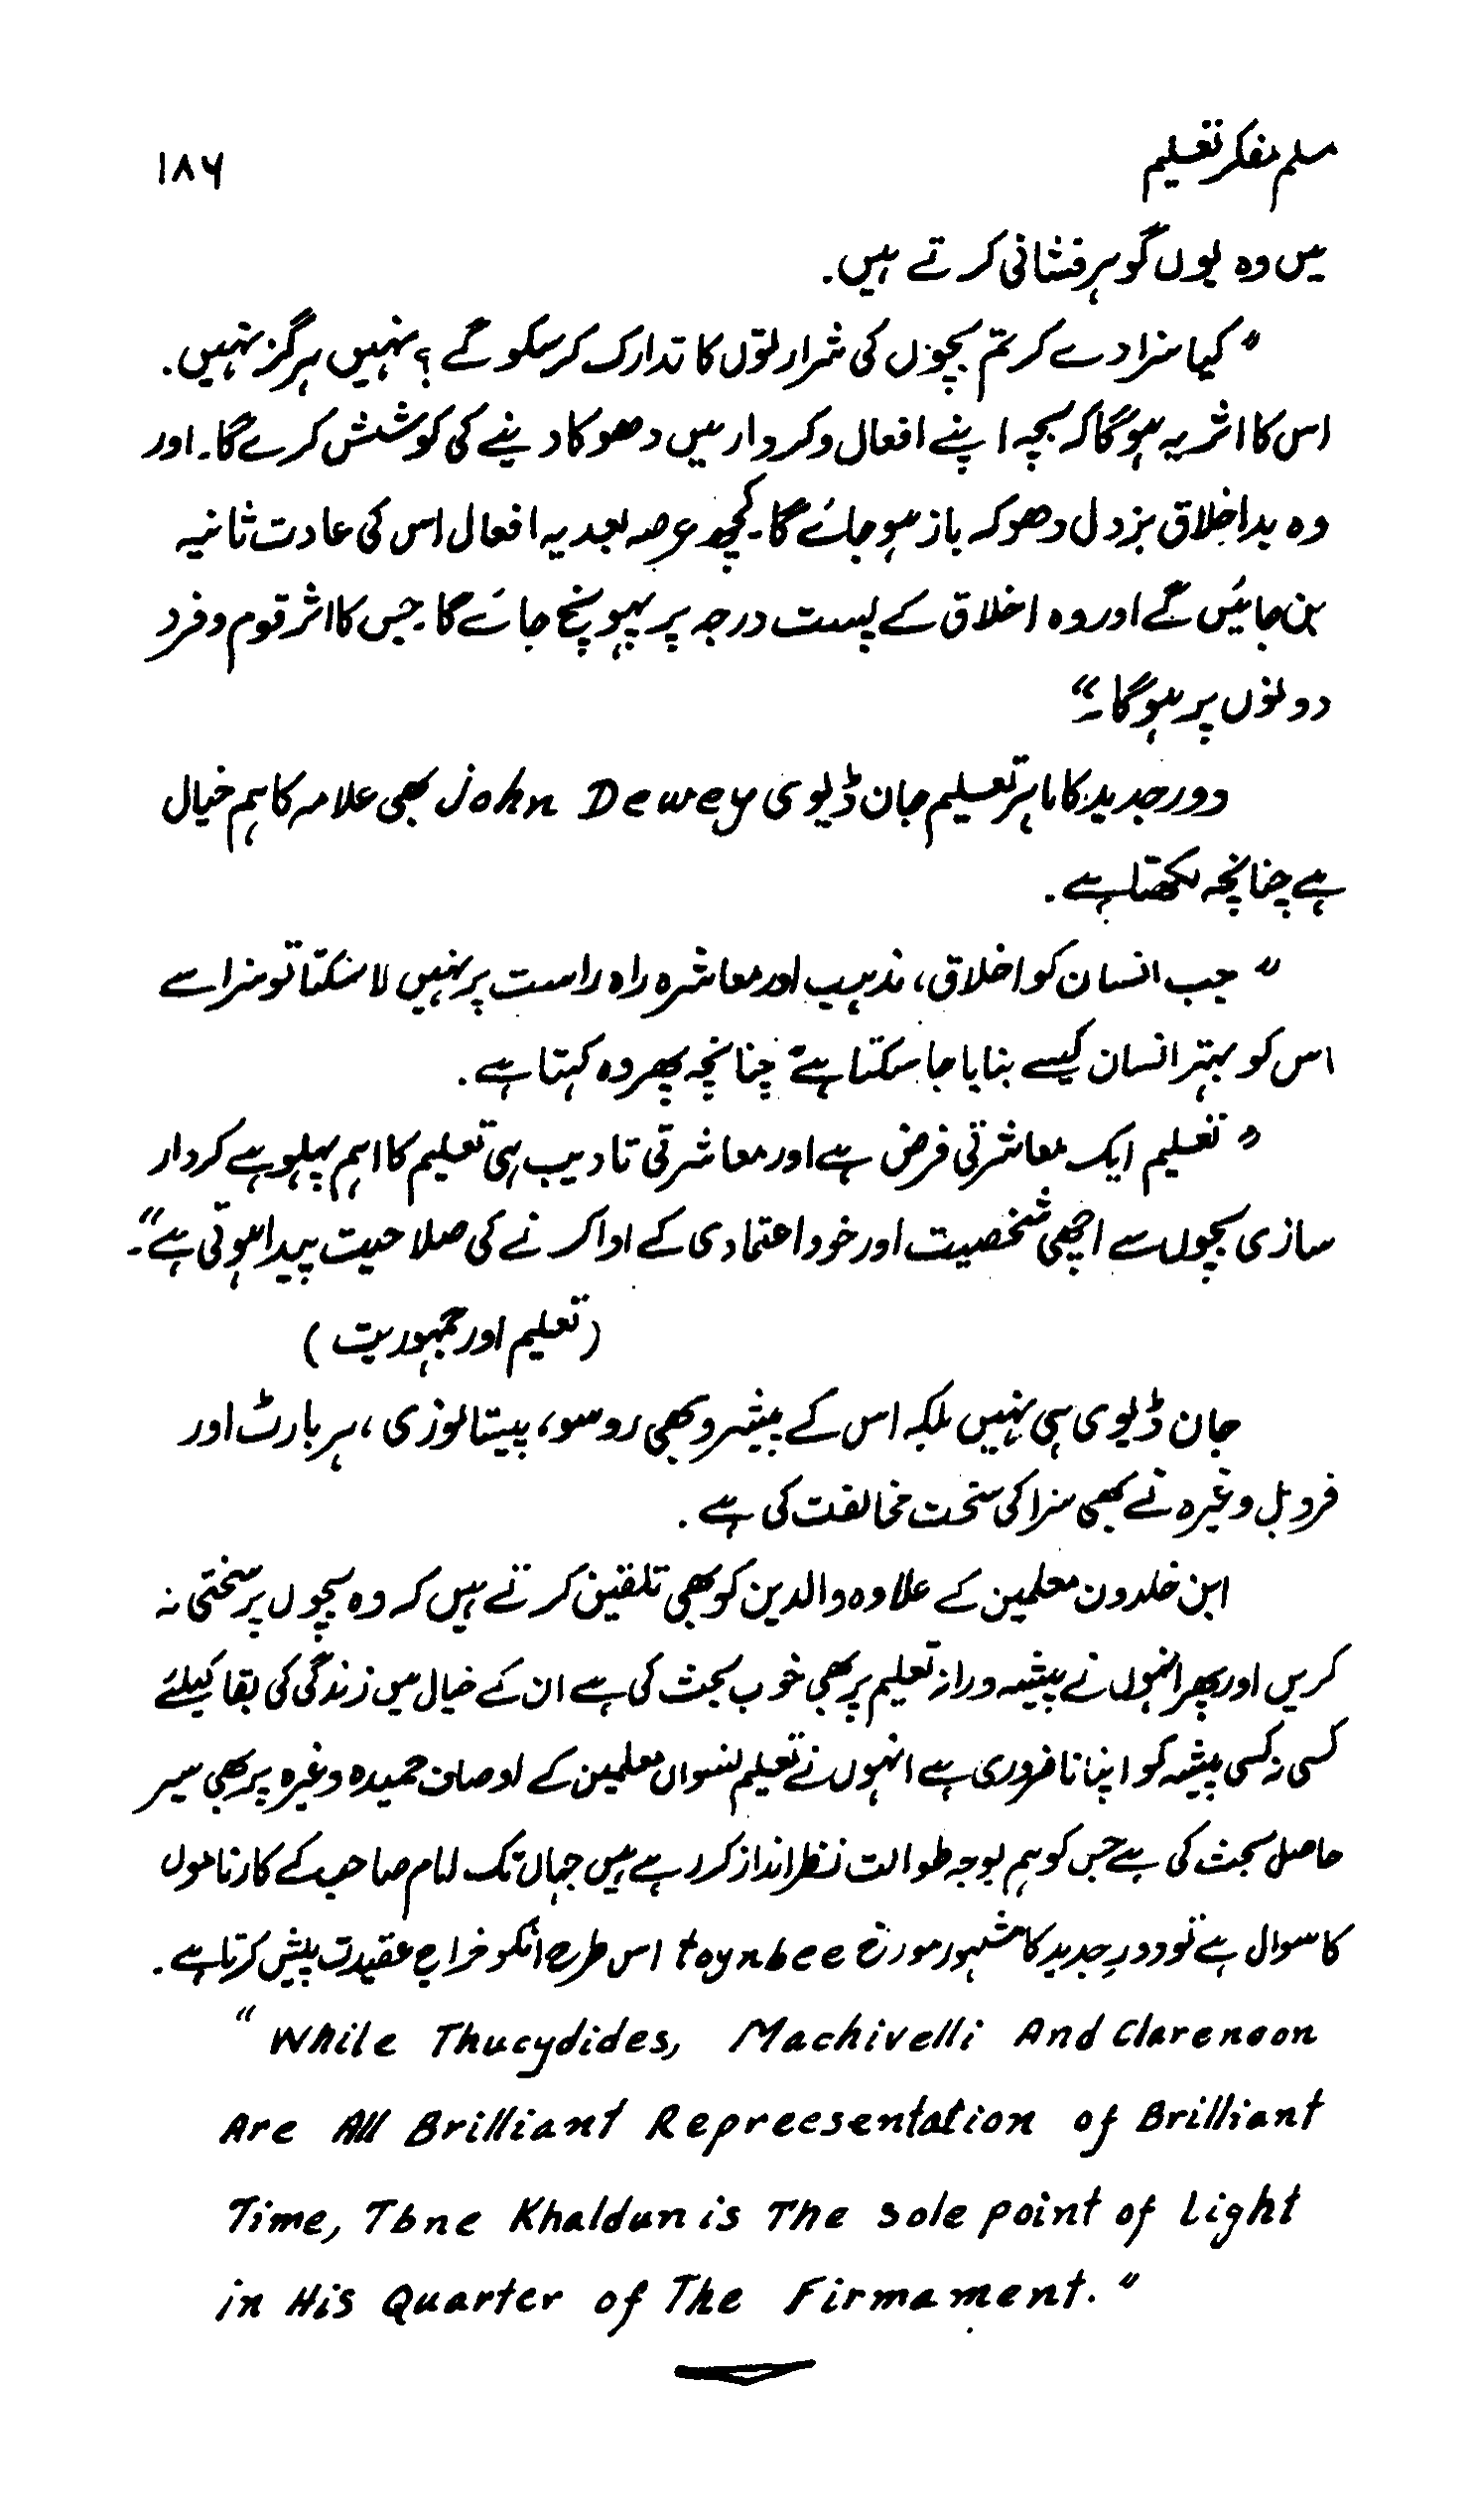 مسلم مفکر تعلیم
۱۸۶
میں وہ یوں گوہر فشانی کرتے ہیں.
"کیا سزا دے کر تم بچوں کی شرارتوں کا تدارک کر سکو گے؟ نہیں ہرگز نہیں.
اس کا اثر یہ ہوگا کہ بچہ اپنے افعال و کردار میں دھوکا دینے کی کوشش کرے گا۔ اور
وہ بداخلاق بزدل دھوکہ باز ہو جائے گا۔ کچھ عرصہ بعد یہ افعال اس کی عادت ثانیہ
بن جائیں گے اور وہ اخلاق کے پست درجہ پر پہونچ جائے گا۔ جس کا اثر قوم و فرد
دونوں پر ہوگا۔"
دور جدید کا ماہر تعلیم جان ڈیوی John Dewey بھی علامہ کا ہم خیال
ہے چنانچہ لکھتا ہے.
"جب انسان کو اخلاق، مذہب اور معاشرہ راہ راست پر نہیں لا سکتا تو سزا سے
اس کو بہتر انسان کیسے بنایا جا سکتا ہے" چنانچہ پھر وہ کہتا ہے.
"تعلیم ایک معاشرتی فرض ہے اور معاشرتی تادیب ہی تعلیم کا اہم پہلو ہے کردار
سازی بچوں سے اچھی شخصیت اور خود اعتمادی کے ادا کرنے کی صلاحیت پیدا ہوتی ہے"۔
(تعلیم اور جمہوریت)
جان ڈیوی ہی نہیں بلکہ اس کے پیشرو بھی روسو، پیستالوزی، ہربارٹ اور
فروبل وغیرہ نے بھی سزا کی سخت مخالفت کی ہے.
ابن خلدون معلمین کے علاوہ والدین کو بھی تلقین کرتے ہیں کہ وہ بچوں پر سختی نہ
کریں اور پھر انہوں نے پیشہ ورانہ تعلیم پر بھی خوب بحث کی ہے ان کے خیال میں زندگی کی بقا کیلئے
کسی نہ کسی پیشہ کو اپنانا ضروری ہے انہوں نے تعلیم نسواں معلمین کے اوصاف حمیدہ وغیرہ پر بھی سیر
حاصل بحث کی ہے جس کو ہم بوجہ طوالت نظر انداز کر رہے ہیں جہاں تک امام صاحب کے کارناموں
کا سوال ہے تو دورِ جدید کا مشہور مورخ toynbee اس طرح انکو خراج عقیدت پیش کرتا ہے.
"While Thucydides, Machivelli And Clarenoon
Are All Brilliant Repreesentation of Brilliant
Time, Tbne Khaldun is The sole point of light
in His Quarter of The Firmament."